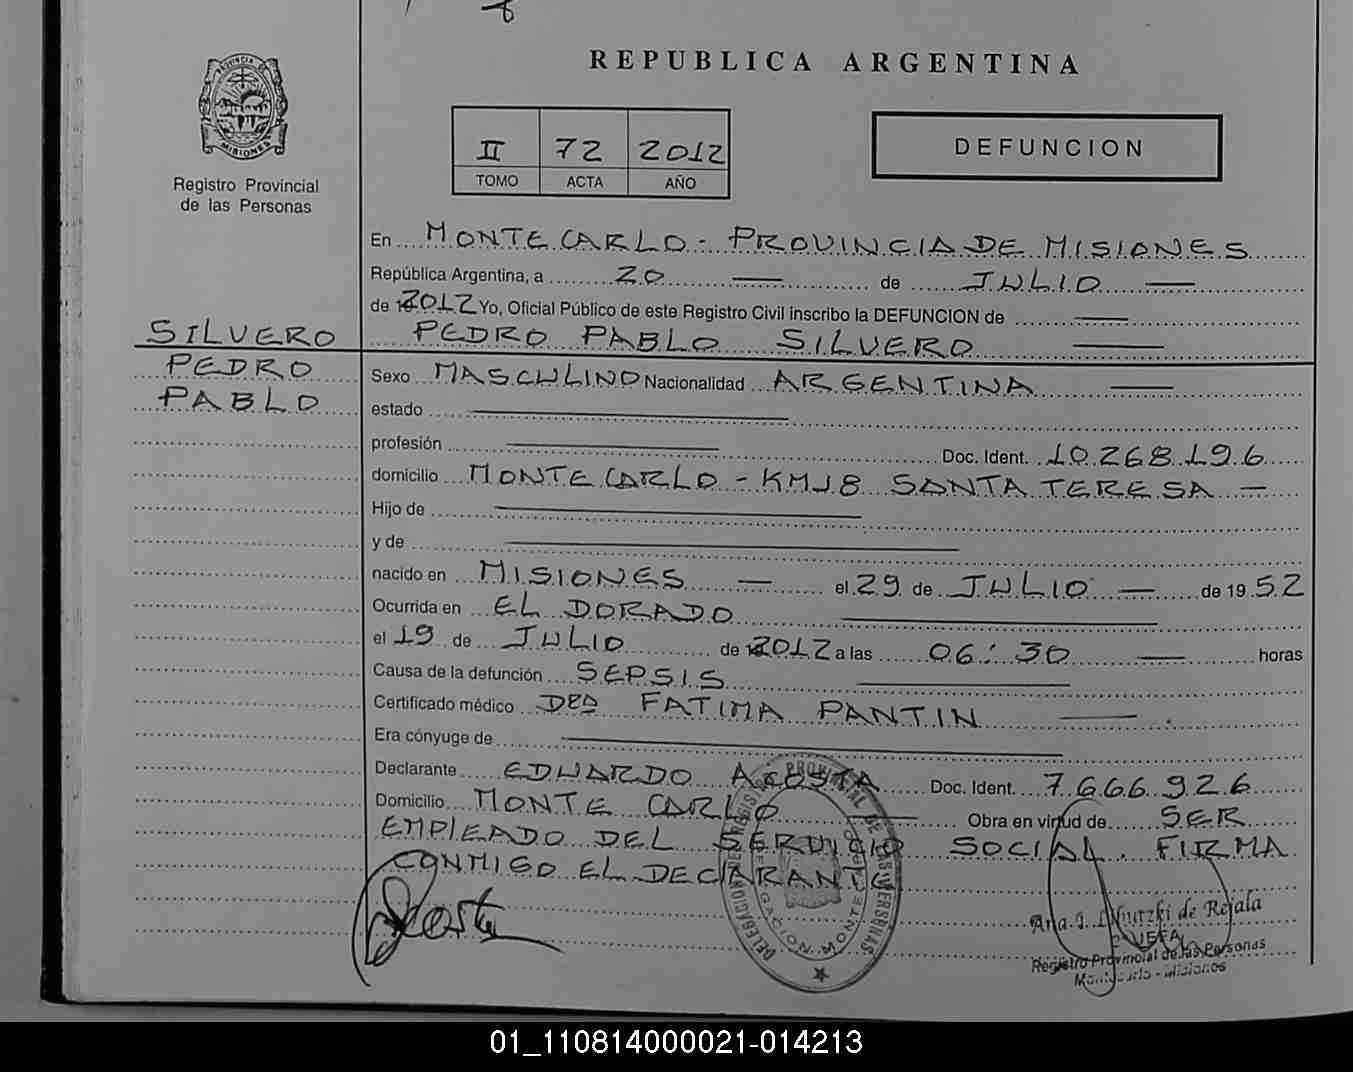 REPUBLICA ARGENTINA
PROVINCIA DE
MISIONES
Registro Provincial
de las Personas
II 72 2012
TOMO ACTA AÑO
DEFUNCION
En MONTECARLO - PROVINCIA DE MISIONES
República Argentina, a 20 de JULIO
de 2012 Yo, Oficial Público de este Registro Civil inscribo la DEFUNCION de
SILVERO
PEDRO PABLO SILVERO
PEDRO
PABLO
Sexo MASCULINO Nacionalidad ARGENTINA
estado
profesión Doc. Ident. 10.268.196
domicilio MONTECARLO - KM18 SANTA TERESA
Hijo de
y de
nacido en MISIONES el 29 de JULIO de 1952
Ocurrida en EL DORADO
el 19 de JULIO de 2012 a las 06:30 horas
Causa de la defunción SEPSIS
Certificado médico DRA FATIMA PANTIN
Era cónyuge de
Declarante EDUARDO ACOSTA Doc. Ident. 7.666.926
Domicilio MONTE CARLO Obra en virtud de SER
EMPLEADO DEL SERVICIO SOCIAL. FIRMA
CONMIGO EL DECLARANTE
Acosta
Ana de Rejala
JEFA
Registro Provincial de las Personas
Montecarlo - Misiones
01_110814000021-014213